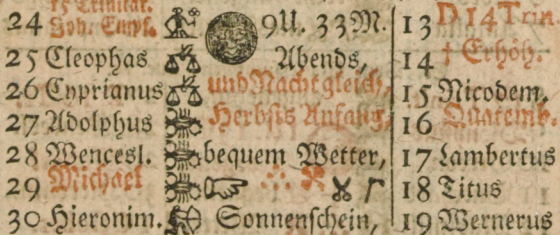 15 Trinitat. D 14 Trin
24 Joh. Empf. 9U. 33M. 13
25 Cleophas Abends, 14 † Erhöh.
26 Cyprianus und Nachtgleich, 15 Nicodem.
27 Adolphus Herbsts Anfang, 16 Quatemb.
28 Wencesl. bequem Wetter, 17 Lambertus
29 Michael 18 Titus
30 Hieronim. Sonnenschein, 19 Wernerus